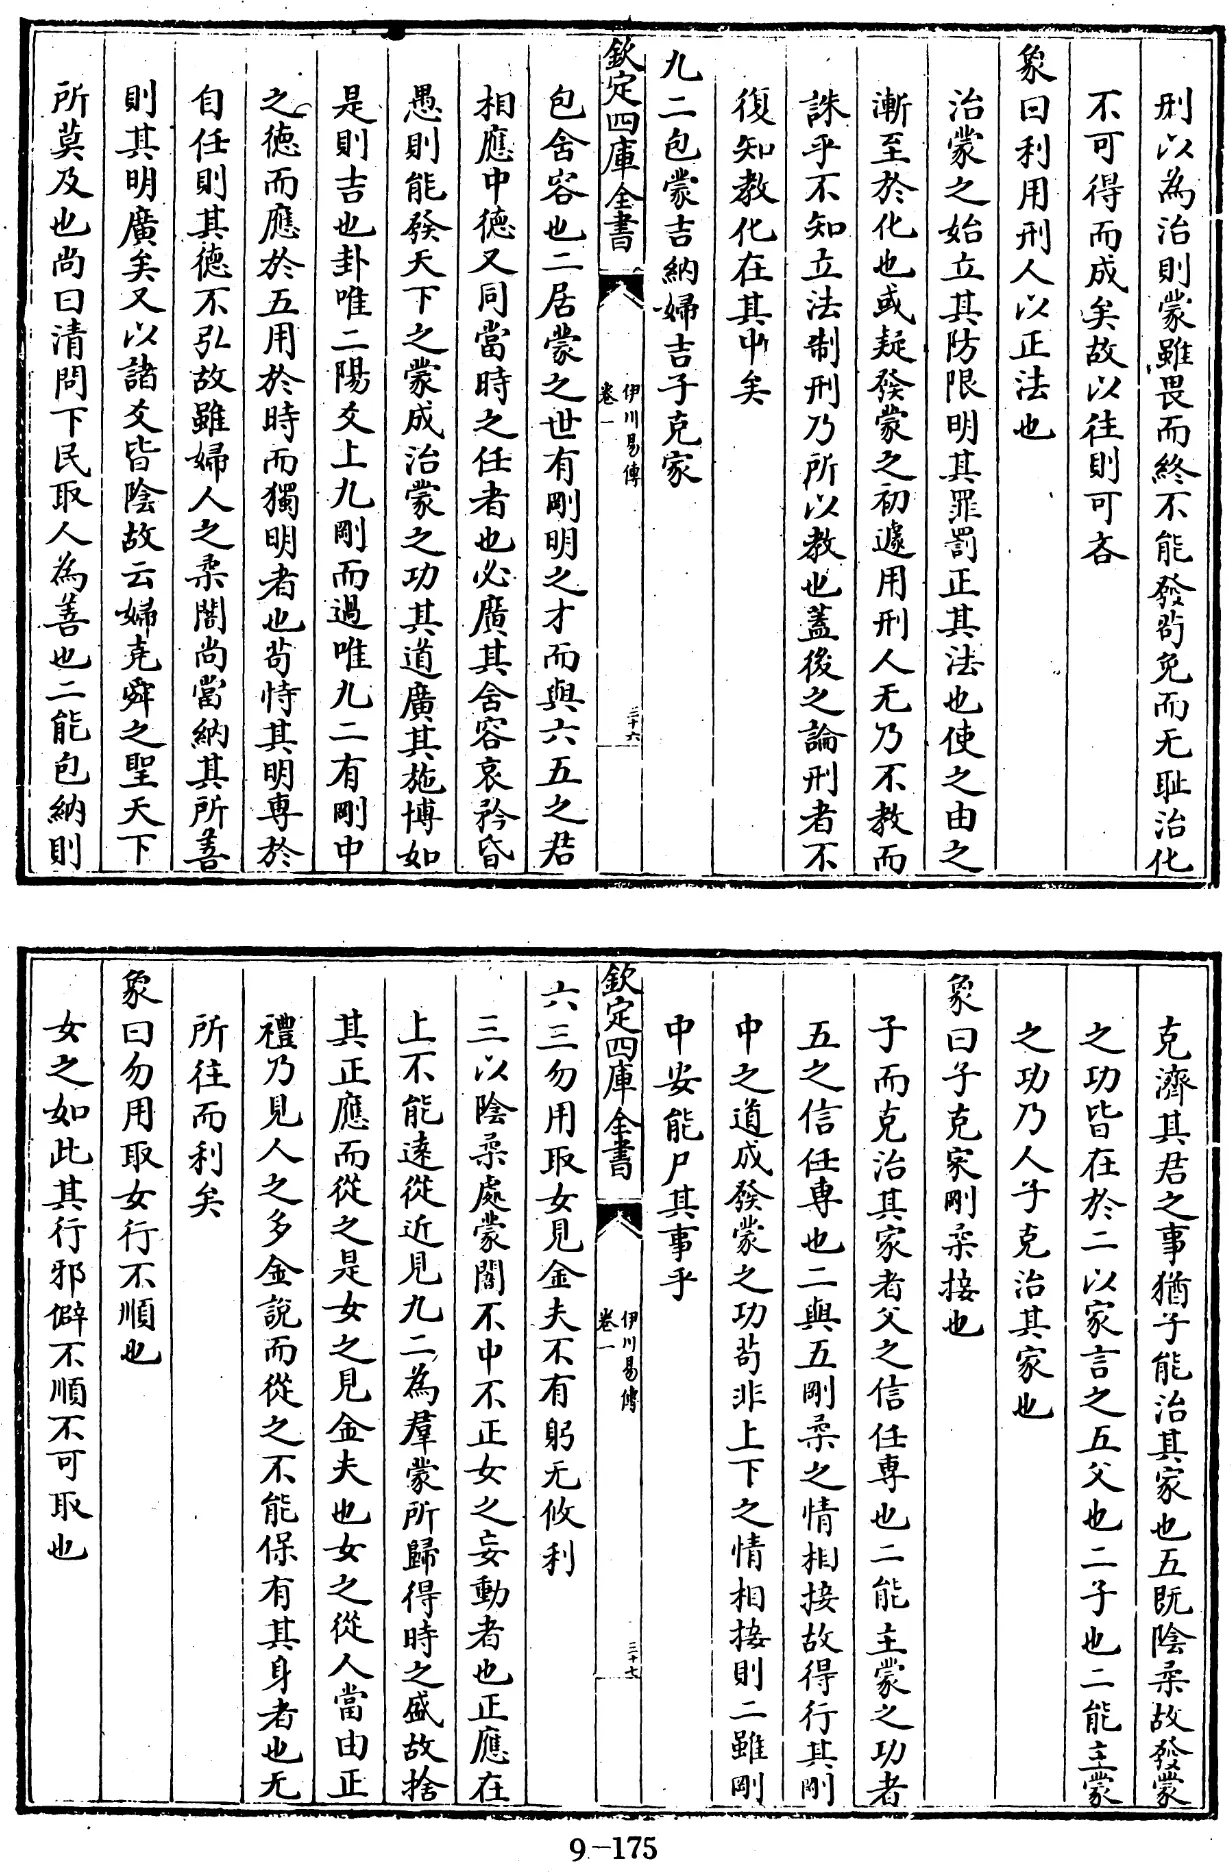 刑以為治則蒙雖畏而終不能發苟免而无恥治化
不可得而成矣故以往則可吝
象曰利用刑人以正法也
治蒙之始立其防限明其罪罰正其法也使之由之
漸至於化也或疑發蒙之初遽用刑人无乃不教而
誅乎不知立法制刑乃所以教也蓋後之論刑者不
復知教化在其中矣
九二包蒙吉納婦吉子克家
欽定四庫全書
伊川易傳
卷一
三十六
包含容也二居蒙之世有剛明之才而與六五之君
相應中德又同當時之任者也必廣其含容哀矜昏
愚則能發天下之蒙成治蒙之功其道廣其施博如
是則吉也卦唯二陽爻上九剛而過唯九二有剛中
之德而應於五用於時而獨明者也苟恃其明專於
自任則其德不弘故雖婦人之柔闇尚當納其所善
則其明廣矣又以諸爻皆陰故云婦堯舜之聖天下
所莫及也尚曰清問下民取人為善也二能包納則
克濟其君之事猶子能治其家也五既陰柔故發蒙
之功皆在於二以家言之五父也二子也二能主蒙
之功乃人子克治其家也
象曰子克家剛柔接也
子而克治其家者父之信任專也二能主蒙之功者
五之信任專也二與五剛柔之情相接故得行其剛
中之道成發蒙之功苟非上下之情相接則二雖剛
中安能尸其事乎
欽定四庫全書
伊川易傳
卷一
三十七
六三勿用取女見金夫不有躬无攸利
三以陰柔處蒙闇不中不正女之妄動者也正應在
上不能遠從近見九二為羣蒙所歸得時之盛故捨
其正應而從之是女之見金夫也女之從人當由正
禮乃見人之多金說而從之不能保有其身者也无
所往而利矣
象曰勿用取女行不順也
女之如此其行邪僻不順不可取也
9-175